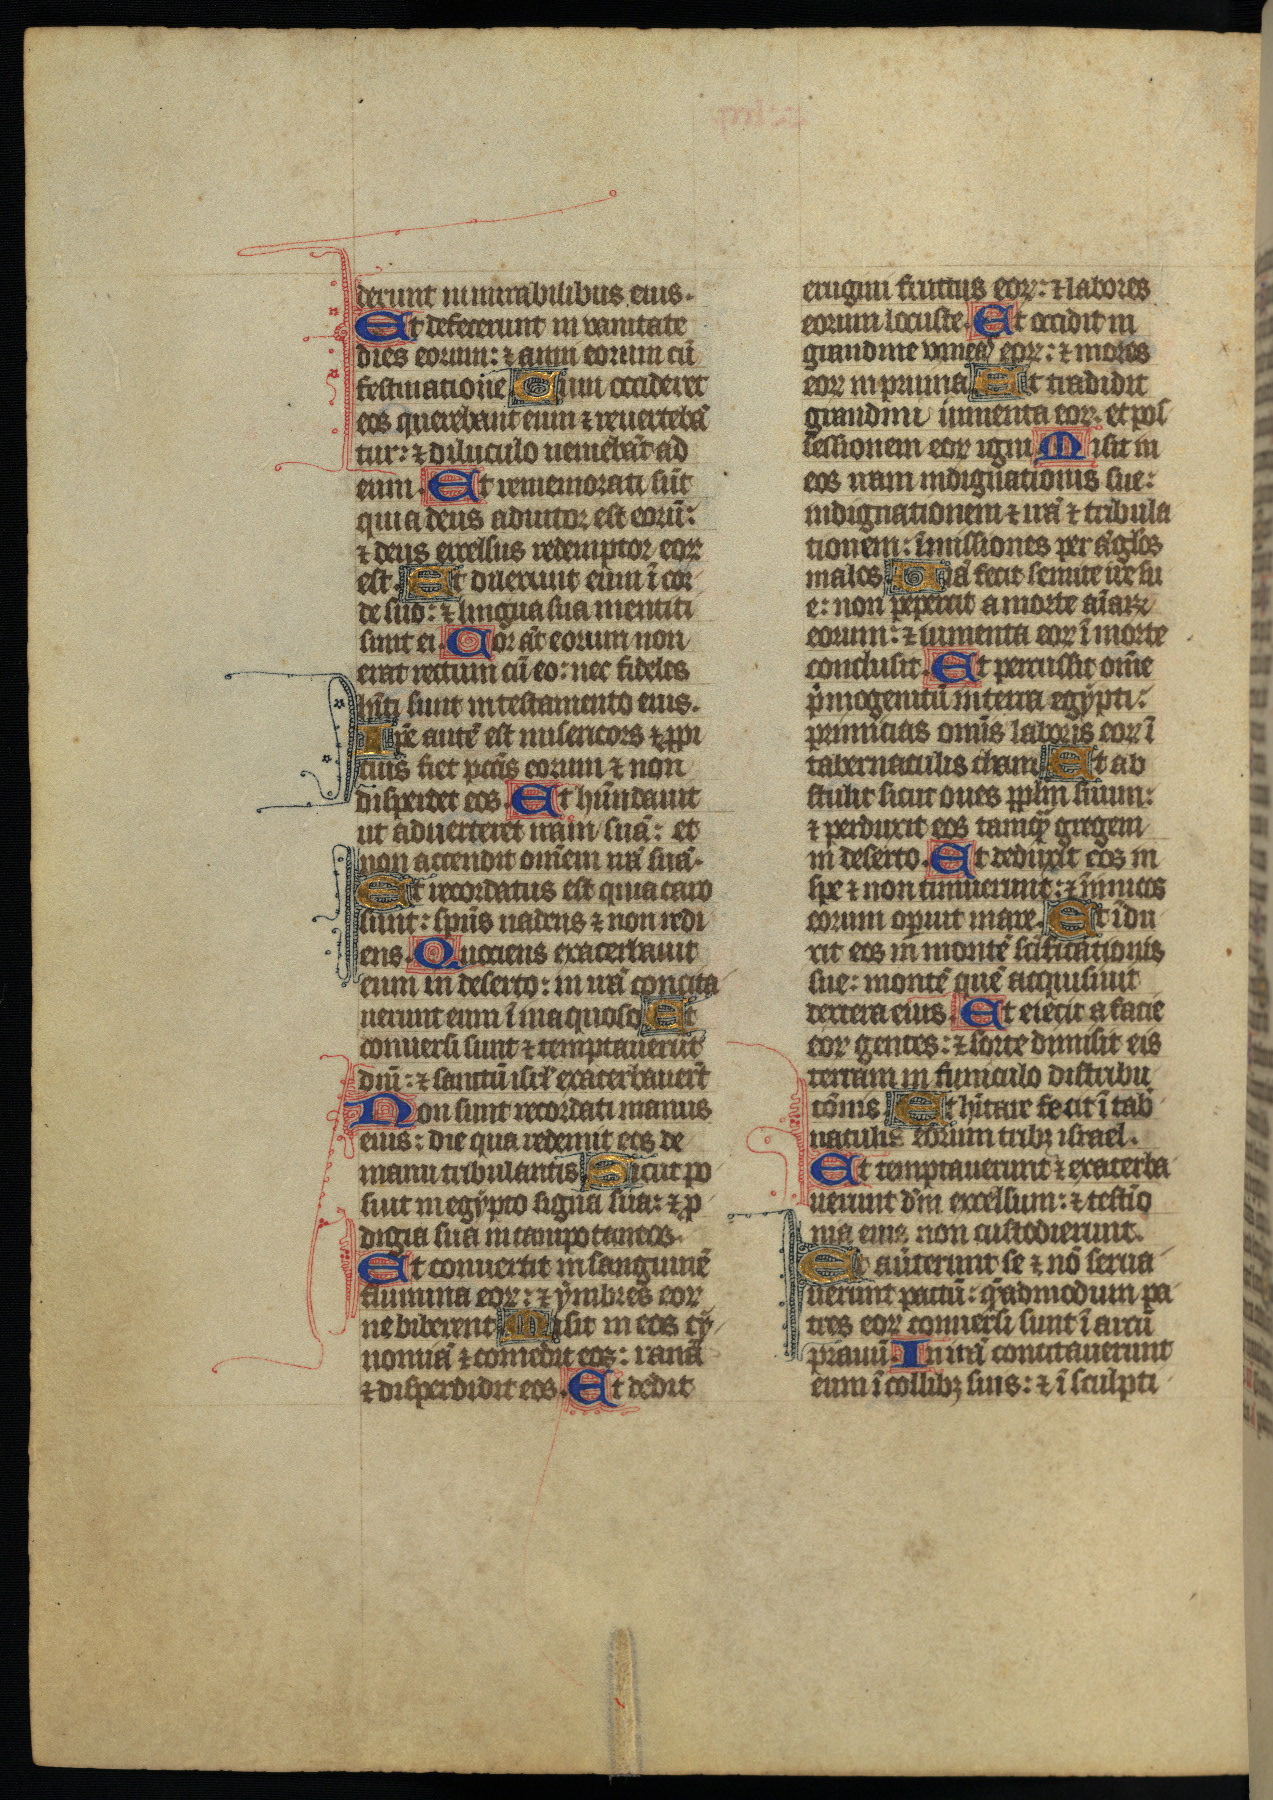 derunt in mirabilibus eius.
Et defecerunt in vanitate
dies eorum: ⁊ anni eorum cū
festinatione Cum occideret
eos querebant eum ⁊ reuertebā
tur: ⁊ diluculo ueniebāt ad
eum. Et rememorati sūt
quia deus adiutor est eorū:
⁊ deus excelsus redemptor eoꝝ
est. Et dilexerunt eum ī cor
de suo: ⁊ lingua sua mentiti
sunt ei. Cor āt eorum non
erat rectum cū eo: nec fideles
hīti sunt in testamento eius.
Ip̄e autē est misericors ⁊ ꝓpi
cius fiet pctīs eorum ⁊ non
disperdet eos. Et hūndauit
ut aduerteret iram suā: et
non accendit omēm irā suā.
Et recordatus est quia caro
sunt: spūs uadens ⁊ non redi
ens. Quociens exacerbauit
eum in deserto: in irā concita
uerunt eum ī inaquoso Et
conuersi sunt ⁊ temptauerūt
dm̄: ⁊ sanctū isrl̄ exacerbauer̄t
Non sunt recordati manus
eius: die qua redemit eos de
manu tribulantis Sicut po
suit in egypto signa sua: ⁊ ꝓ
digia sua in campo taneos.
Et conuertit in sanguinē
flumina eoꝝ: ⁊ ymbres eoꝝ
ne biberent Misit in eos cy
nomiā ⁊ comedit eos: ranā
⁊ disperdidit eos. Et dedit
erugini fructus eoꝝ: ⁊ labores
eorum locuste. Et occidit in
grandine vineas eoꝝ: ⁊ moros
eoꝝ in pruina. Et tradidit
grandini iumenta eoꝝ. et pos
sessionem eoꝝ igni Misit in
eos iram indignationis sue:
indignationem ⁊ irā ⁊ tribula
tionem: īmissiones per āglos
malos. Uiā fecit semite ire su
e: non pepercit a morte aīaꝝ
eorum: ⁊ iumenta eoꝝ ī morte
conclusit. Et percussit om̄e
p̄mogenitū in terra egypti:
primicias omīs laboris eoꝝ ī
tabernaculis cham Et ab
stulit sicut oues pplm̄ suum:
⁊ perduxit eos tamqͣ gregem
in deserto. Et deduxit eos in
spe ⁊ non timuerunt: ⁊ īimicos
eorum opuit mare. Et īdu
xit eos in montē scīficationis
sue: montē quē acquisiuit
dextera eius. Et eiecit a facie
eoꝝ gentes: ⁊ sorte diuisit eis
terram in funiculo distribu
cōnis Et hītare fecit ī tab̄
naculis eorum tribꝫ israel.
Et temptauerunt ⁊ exacerba
uerunt dm̄ excelsum: ⁊ testīo
nia eius non custodierunt.
Et auterunt se ⁊ nō serua
uerunt pactū: qͣdmodum pa
tres eoꝝ conuersi sunt ī arcū
prauū. In irā concitauerunt
eum ī collibꝫ suis: ⁊ ī sculpti